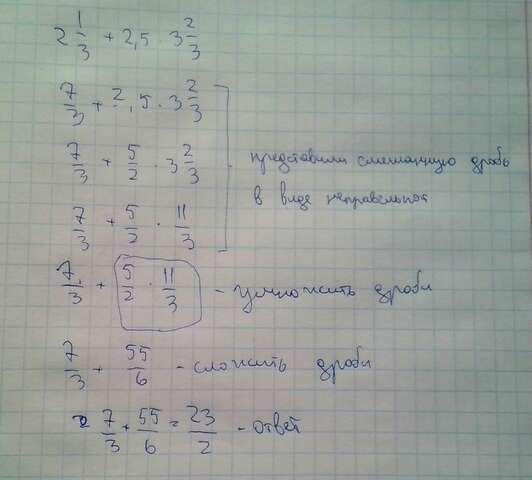 2 1/3 + 2,5 · 3 2/3
7/3 + 2,5 · 3 2/3
7/3 + 5/2 · 3 2/3
представили смешанную дробь
в виде неправельной
7/3 + 5/2 · 11/3
7/3 + 5/2 · 11/3 - умножить дроби
7/3 + 55/6 - сложить дроби
7/3 + 55/6 = 23/2 - ответ